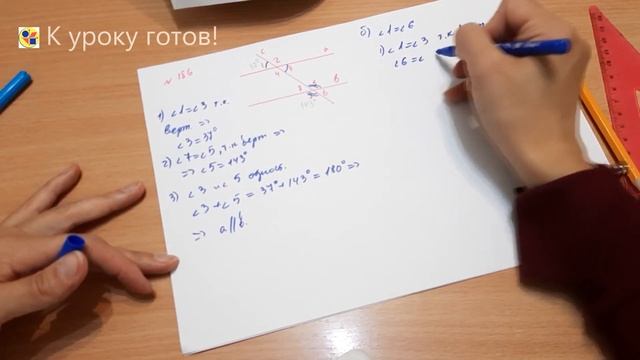 К уроку готов!
№ 186
c
a
1 2
4 3
b
8 5
7 6
143°
1) ∠1=∠3 т.к.
верт. =>
∠3=37°
2) ∠7=∠5, т.к верт =>
=> ∠5=143°
3) ∠3 и ∠5 одност.
∠3+∠5 = 37°+143° = 180° =>
=> a||b.
б) ∠1=∠6
1) ∠1=∠3 т.к верт
∠6=∠